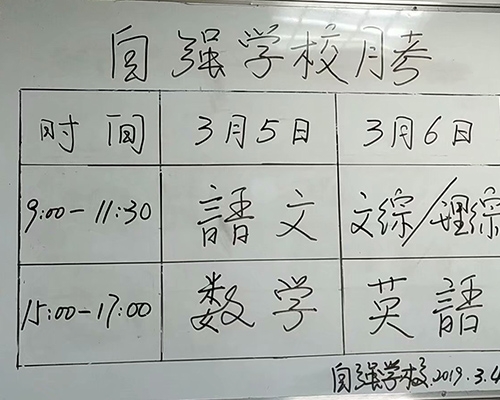 自强学校月考
时间 3月5日 3月6日
9:00-11:30 語文 文综/理综
15:00-17:00 数学 英語
自强学校.2019.3.4